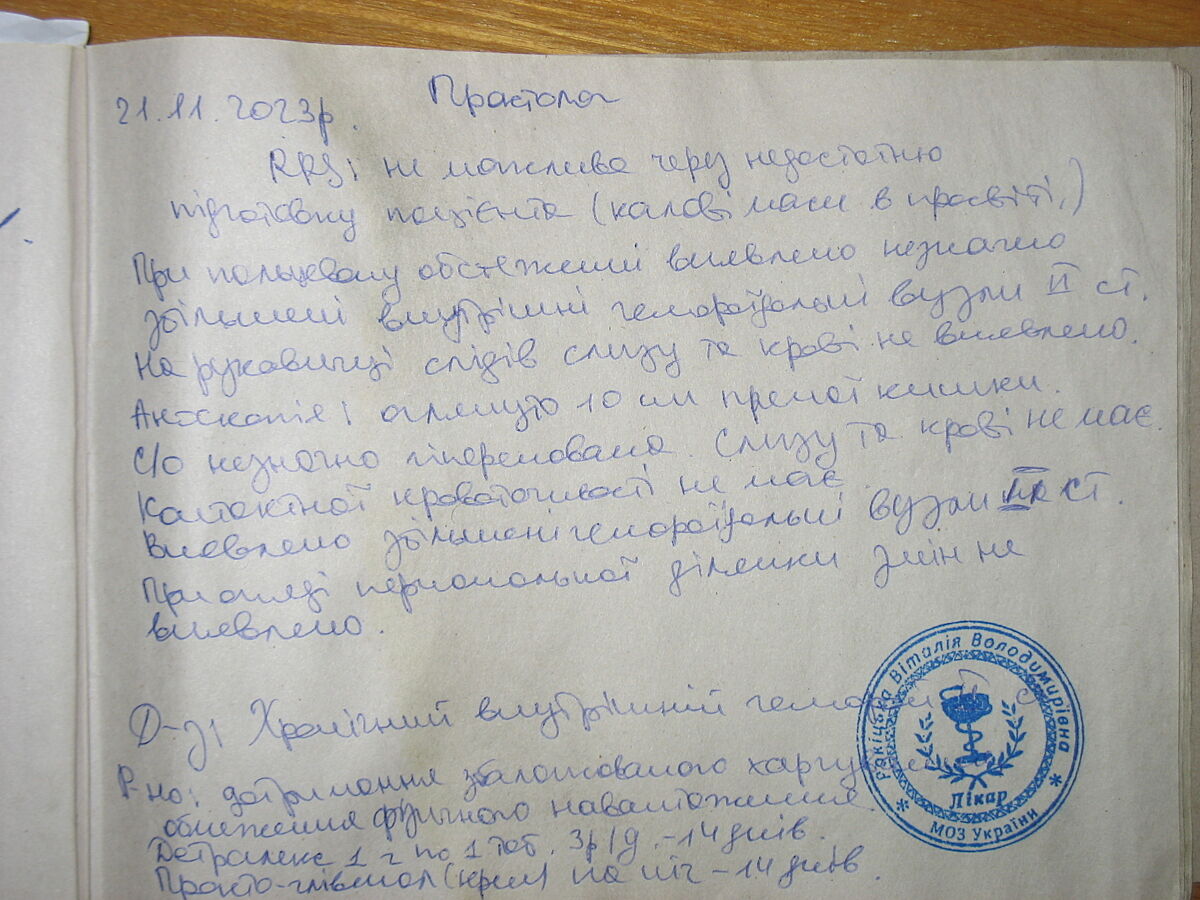 21.11.2023р. Проктолог
RRS: не можлива через недостатню
підготовку пацієнта (калові маси в просвіті.)
При пальцевому обстеженні виявлено незначно
збільшені внутрішні гемороїдальні вузли II ст.
На рукавичці слідів слизу та крові не виявлено.
Аноскопія: оглянуто 10 см прямої кишки.
С/о незначно гіперемована. Слизу та крові не має.
Контактної кровоточивості не має
Виявлено збільшені гемороїдальні вузли II ст.
При огляді періанальної ділянки змін не
виявлено.
Д-з: Хронічний внутрішній геморой II с
Р-но: дотримання збалансованого харчування
обмеження фізичного навантаження.
Детралекс 1 г по 1 таб. 3р/д. – 14 днів.
Прокто-глівенол (крем) на ніч – 14 днів.
Ракіцька Віталія Володимирівна
Лікар
* МОЗ України *